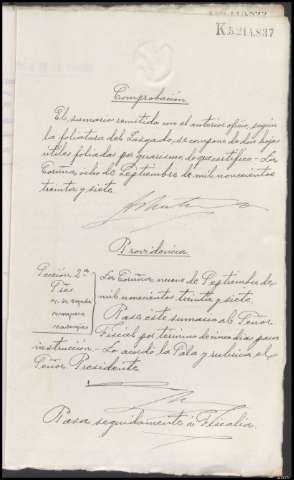 K.5.214.887
Comprobación
El sumario remitido con el anterior oficio, según
la foliatura del Juzgado, se compone de hojas
útiles foliadas por guarismo de que certifico - La
Coruña, ocho de Septiembre de mil novecientos
treinta y siete
Providencia
Sección 2ª
Sres.
La Coruña nueve de Septiembre de
mil novecientos treinta y siete.
Pase este sumario al Señor
Fiscal por término de cinco días para
instrucción - Lo acordó la Sala y rubrica el
Señor Presidente
Pasa seguidamente a Fiscalía.